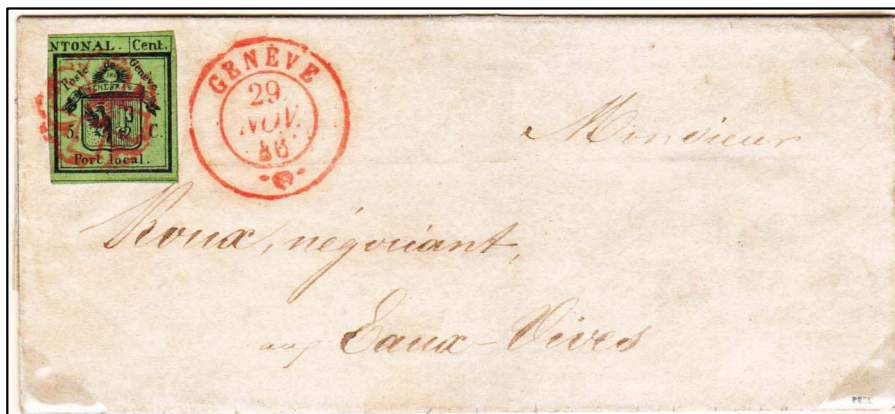 NTONAL. Cent.
Poste de Genève
5. C.
Port local.
GENÈVE
29
NOV.
Monsieur
Roux, négociant,
aux Eaux-Vives